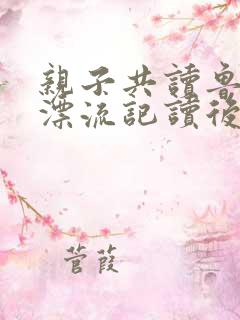 親子共讀魯
漂流記讀後
菅葭